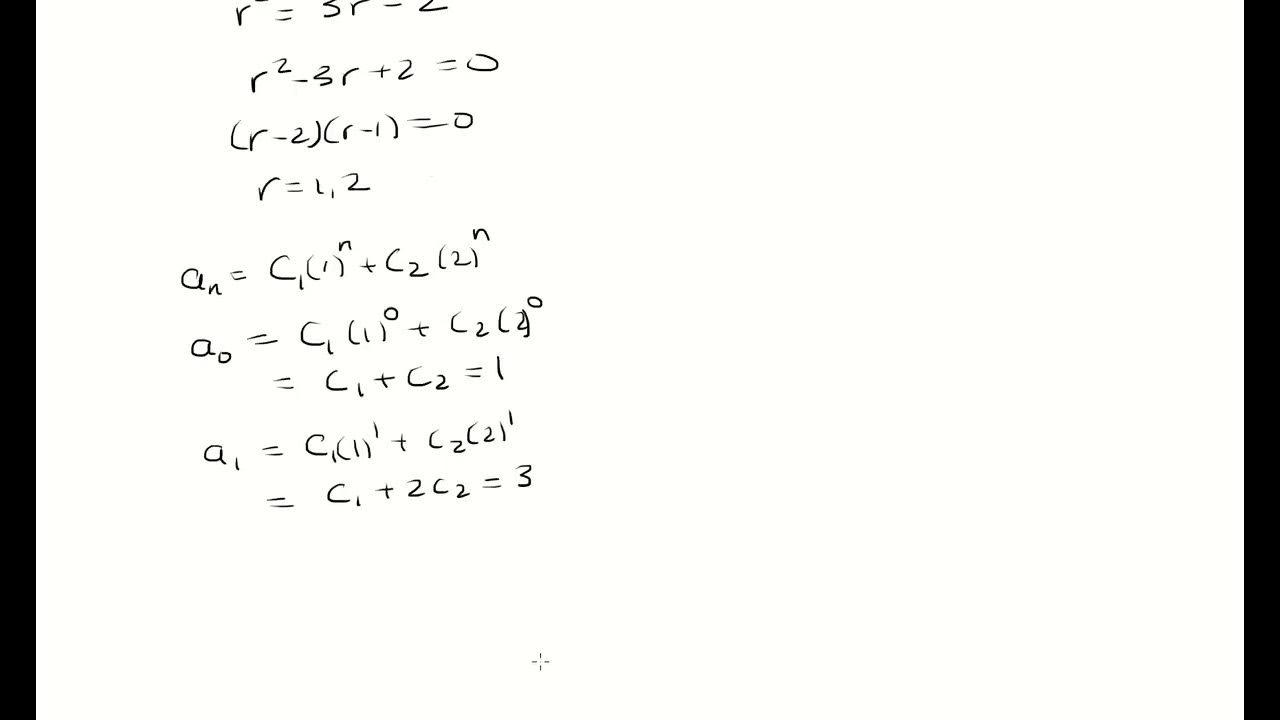 r² = 3r - 2
r² - 3r + 2 = 0
(r-2)(r-1) = 0
r = 1, 2
aₙ = C₁(1)ⁿ + C₂(2)ⁿ
a₀ = C₁(1)⁰ + C₂(2)⁰
= C₁ + C₂ = 1
a₁ = C₁(1)¹ + C₂(2)¹
= C₁ + 2C₂ = 3